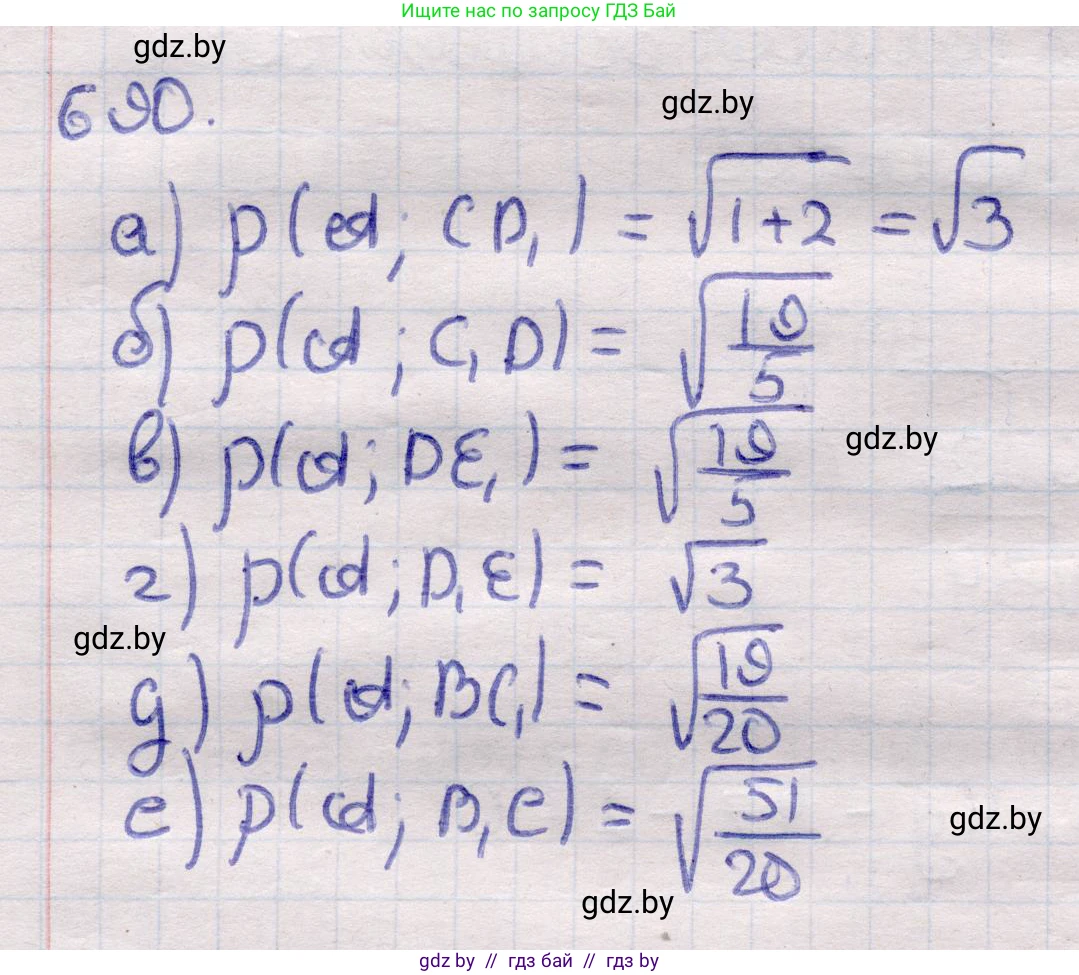 Ищите нас по запросу ГДЗ Бай
gdz.by
690.
gdz.by
а) p(d; CD₁) = √(1+2) = √3
б) p(d; C₁D) = √(19/5)
в) p(d; DE₁) = √(19/5)
gdz.by
г) p(d; D₁E) = √3
gdz.by
д) p(d; BC₁) = √(19/20)
е) p(d; B₁C) = √(51/20)
gdz.by
gdz.by
gdz.by // гдз бай // гдз by